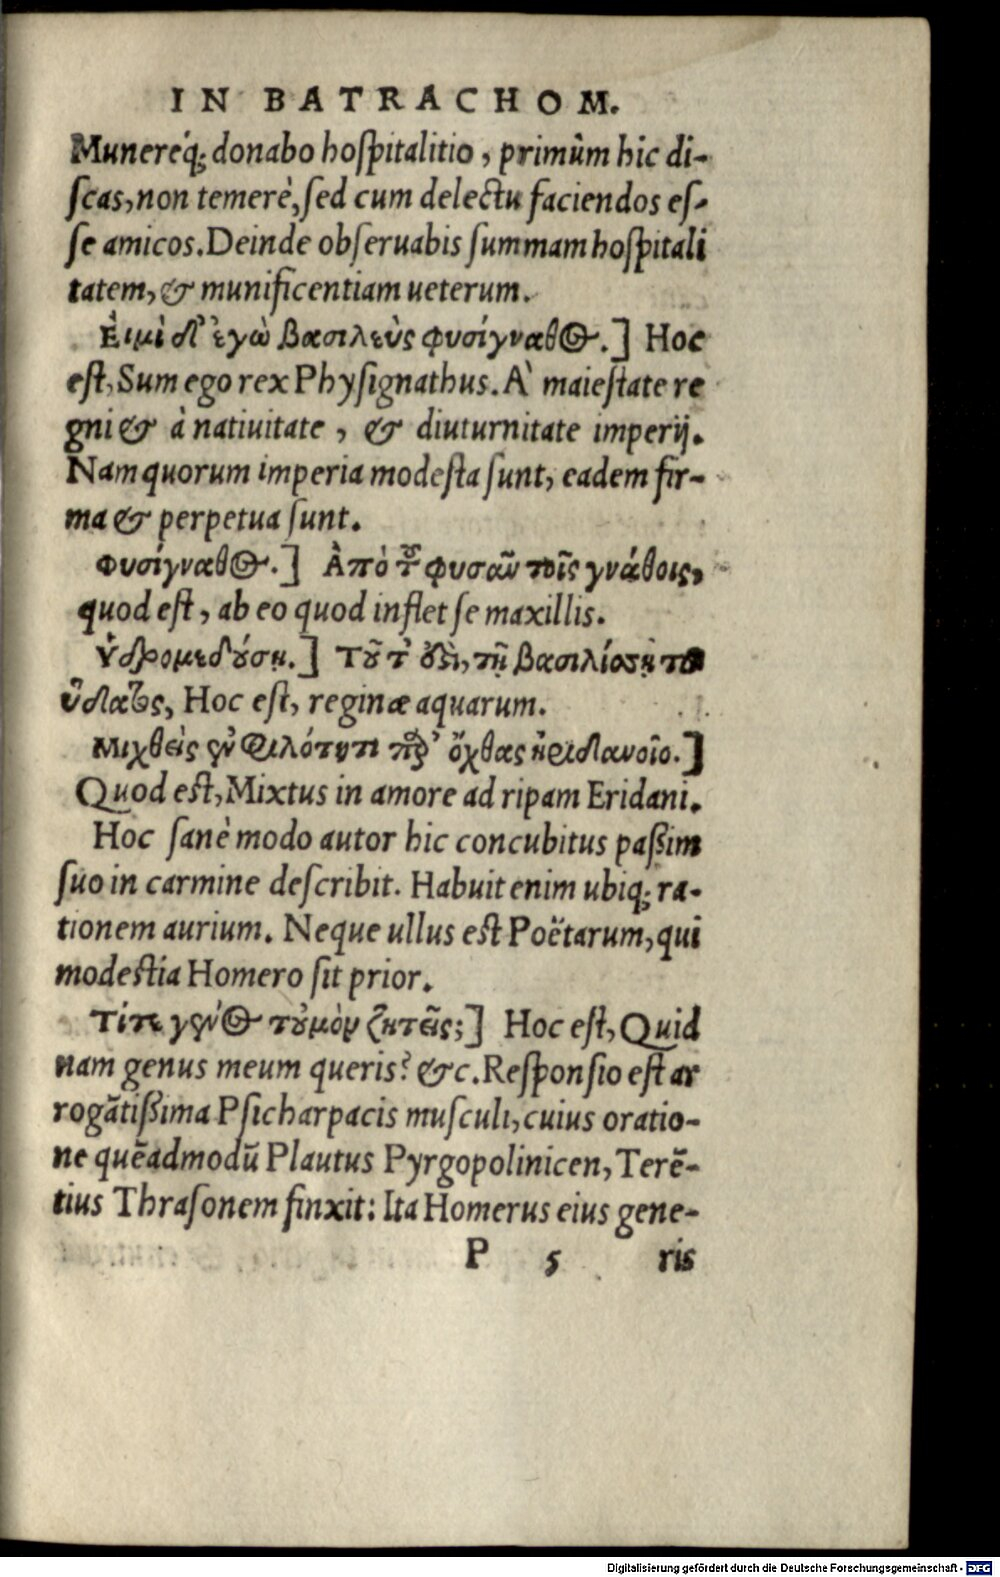 IN BATRACHOM.
Munereq́; donabo hospitalitio, primùm hic di-
scas, non temerè, sed cum delectu faciendos es-
se amicos. Deinde obseruabis summam hospitali
tatem, & munificentiam ueterum.
Εἰμὶ δ' ἐγὼ βασιλεὺς φυσίγναθος.] Hoc
est, Sum ego rex Physignathus. A` maiestate re
gni & à natiuitate, & diuturnitate imperij.
Nam quorum imperia modesta sunt, eadem fir-
ma & perpetua sunt.
φυσίγναθος.] Ἀπὸ τοῦ φυσᾶν τοῖς γνάθοις,
quod est, ab eo quod inflet se maxillis.
Ὑδρομεδούσῃ.] Τοῦτ' ἔστι, τῇ βασιλίσσῃ τοῦ
ὕδατος, Hoc est, reginæ aquarum.
Μιχθεὶς ἐν φιλότητι παρ' ὄχθας ἠριδανοῖο.]
Quod est, Mixtus in amore ad ripam Eridani.
Hoc sanè modo autor hic concubitus paßim
suo in carmine describit. Habuit enim ubiq; ra-
tionem aurium. Neque ullus est Poëtarum, qui
modestia Homero sit prior.
Τίπτε γένος τοὐμὸν ζητεῖς;] Hoc est, Quid
nam genus meum queris? &c. Responsio est ar
rogãtißima Psicharpacis musculi, cuius oratio-
ne quẽadmodũ Plautus Pyrgopolinicen, Terẽ-
tius Thrasonem finxit: Ita Homerus eius gene-
P 5 ris
Digitalisierung gefördert durch die Deutsche Forschungsgemeinschaft - DFG